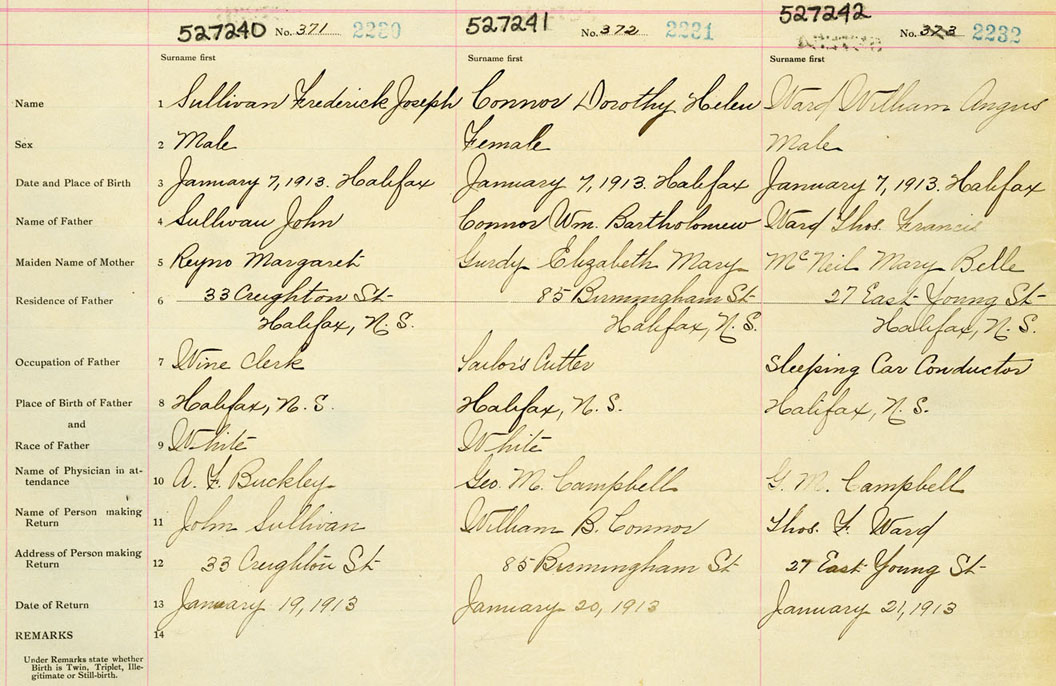 527240 No. 371 2230 527241 No. 372 2231 527242 No. 373 2232
Surname first Surname first Surname first
Name 1 Sullivan Frederick Joseph Connor Dorothy Helen Ward William Angus
Sex 2 Male Female Male
Date and Place of Birth 3 January 7, 1913. Halifax January 7, 1913. Halifax January 7, 1913. Halifax
Name of Father 4 Sullivan John Connor Wm. Bartholomew Ward Thos. Francis
Maiden Name of Mother 5 Reyno Margaret Gurdy Elizabeth Mary McNeil Mary Belle
Residence of Father 6 33 Creighton St 85 Birmingham St 27 East Young St
Halifax, N.S. Halifax, N.S. Halifax, N.S.
Occupation of Father 7 Wine Clerk Tailor's Cutter Sleeping Car Conductor
Place of Birth of Father 8 Halifax, N.S. Halifax, N.S. Halifax, N.S.
and
Race of Father 9 White White
Name of Physician in at-
tendance 10 A. F. Buckley Geo. M. Campbell G. M. Campbell
Name of Person making
Return 11 John Sullivan William B. Connor Thos. F. Ward
Address of Person making
Return 12 33 Creighton St 85 Birmingham St 27 East Young St
Date of Return 13 January 19, 1913 January 20, 1913 January 21, 1913
REMARKS 14
Under Remarks state whether
Birth is Twin, Triplet, Ille-
gitimate or Still-birth.